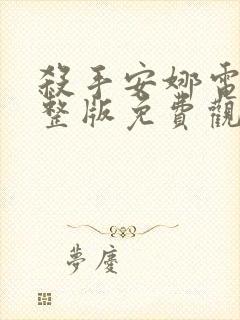 殺手安娜電
整版免費觀
夢慶